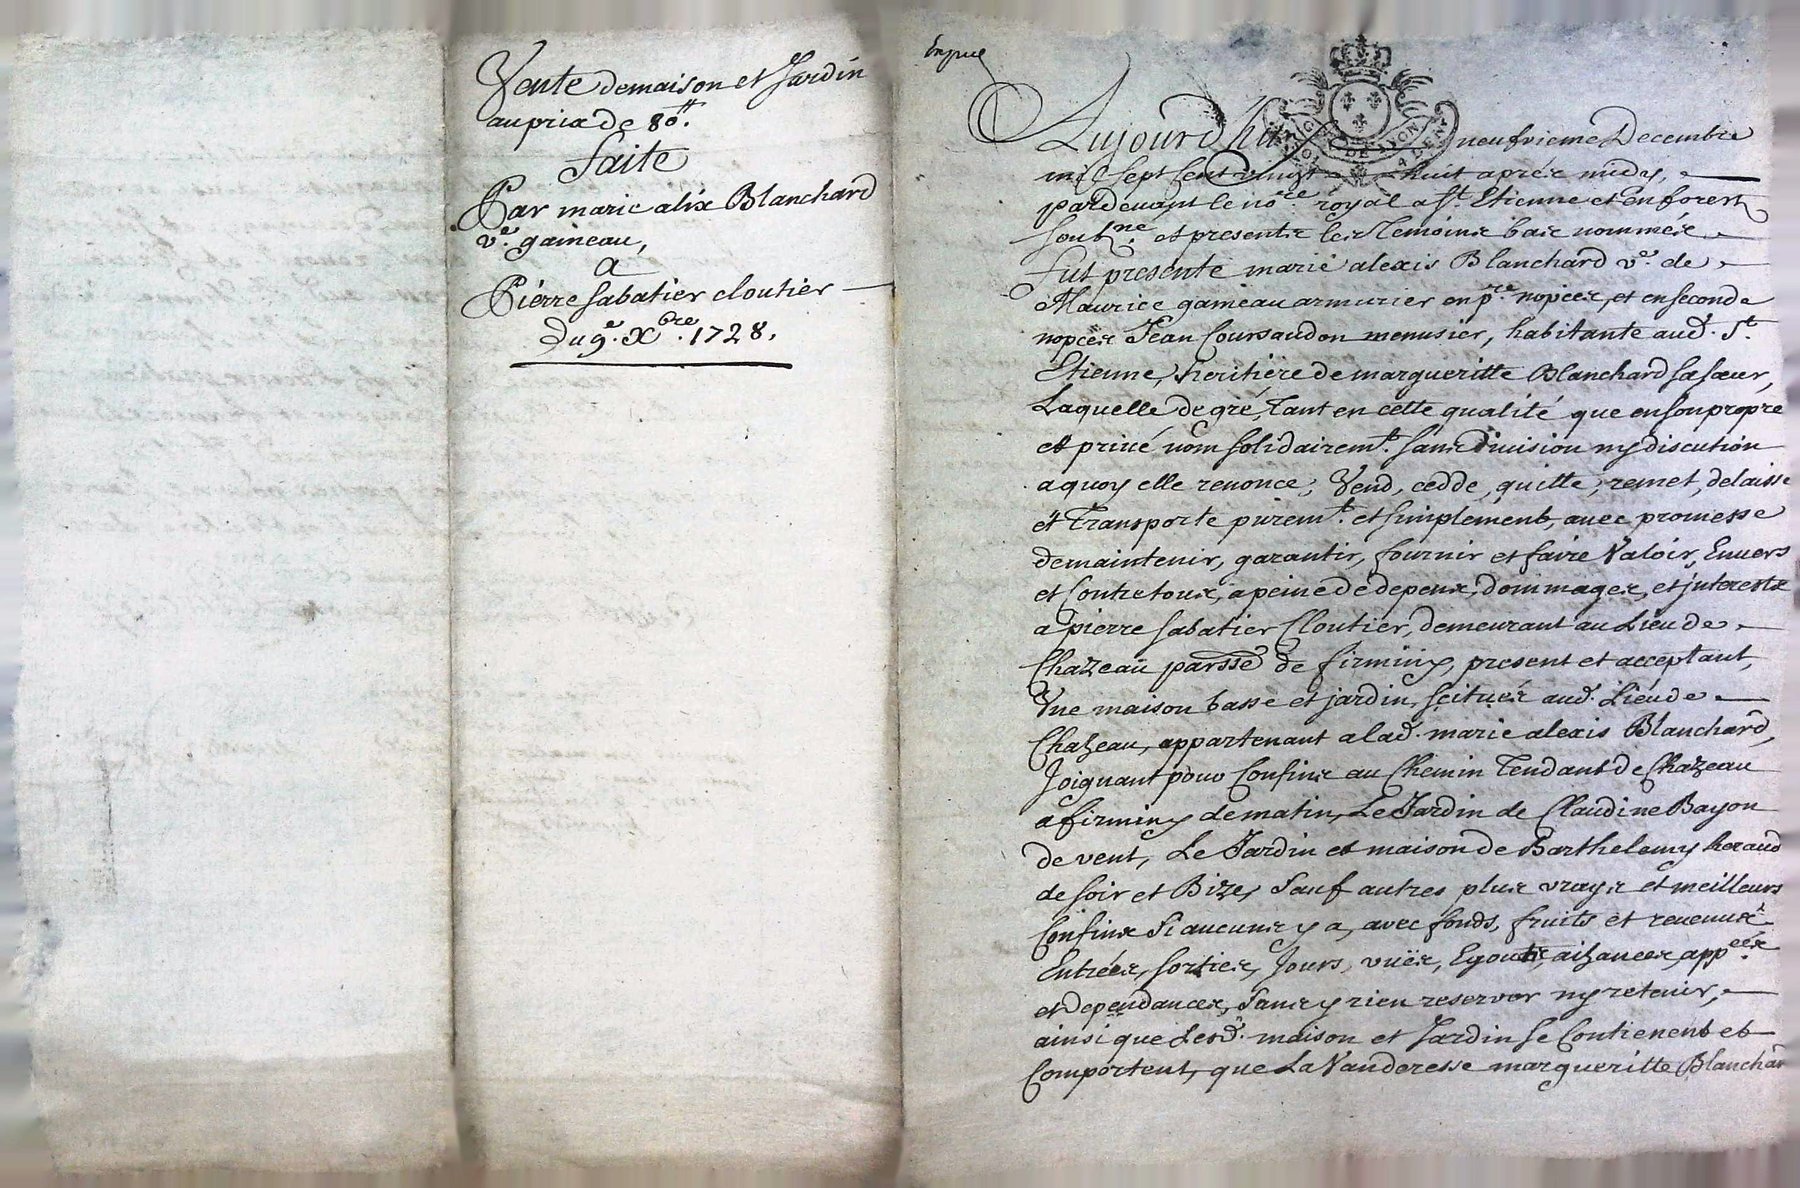 Vente de maison et Jardin
au prix de 80.tt
faite
Par marie alix Blanchard
ve. gaineau,
a
Pierre Sabatier cloutier
Du 9e. Xbre. 1728.
Aujourd'huy neufvieme Decembre
mil sept cent vingt huit aprés midy,
pardevant le nore. royal a St. Etienne et en forest
soubne. et presents les temoins bas nommés
fut presente marie alexis Blanchard ve. de
Maurice gaineau armurier en pre. nopces, et en seconde
nopces Jean Coursaudon menusier, habitante aud. St.
Etienne, heritiere de margueritte Blanchard sa sœur,
Laquelle de gré, tant en cette qualité que en son propre
et privé nom solidairemt. sans division ny discution
a quoy elle renonce; Vend, cedde, quitte, remet, delaisse
et Transporte puremt. et simplement, avec promesse
de maintenir, garantir, fournir et faire Valoir, Envers
et Contre tous, a peine de depens, dommages, et jnterests
a pierre Sabatier Cloutier, demeurant au Lieu de
Chazeau parsse de firminy, present et acceptant,
Vne maison basse et jardin, scitués aud. Lieu de
Chazeau, appartenant a lad. marie alexis Blanchard,
Joignant pour Confins au Chemin Tendant de Chazeau
a firminy de matin, Le Jardin de Claudine Bayon
de vent, Le Jardin et maison de Barthelemy heraud
de soir et Bize, sauf autres plus vrays et meilleurs
Confins si aucuns y a, avec fonds, fruits et revenus
Entrées, sorties, Jours, vuës, Egouts, aizances, appces.
et dependances, sans y rien reserver ny retenir,
ainsi que Lesd. maison et Jardin se Contienent et
Comportent, que La Vanderesse margueritte Blanchar